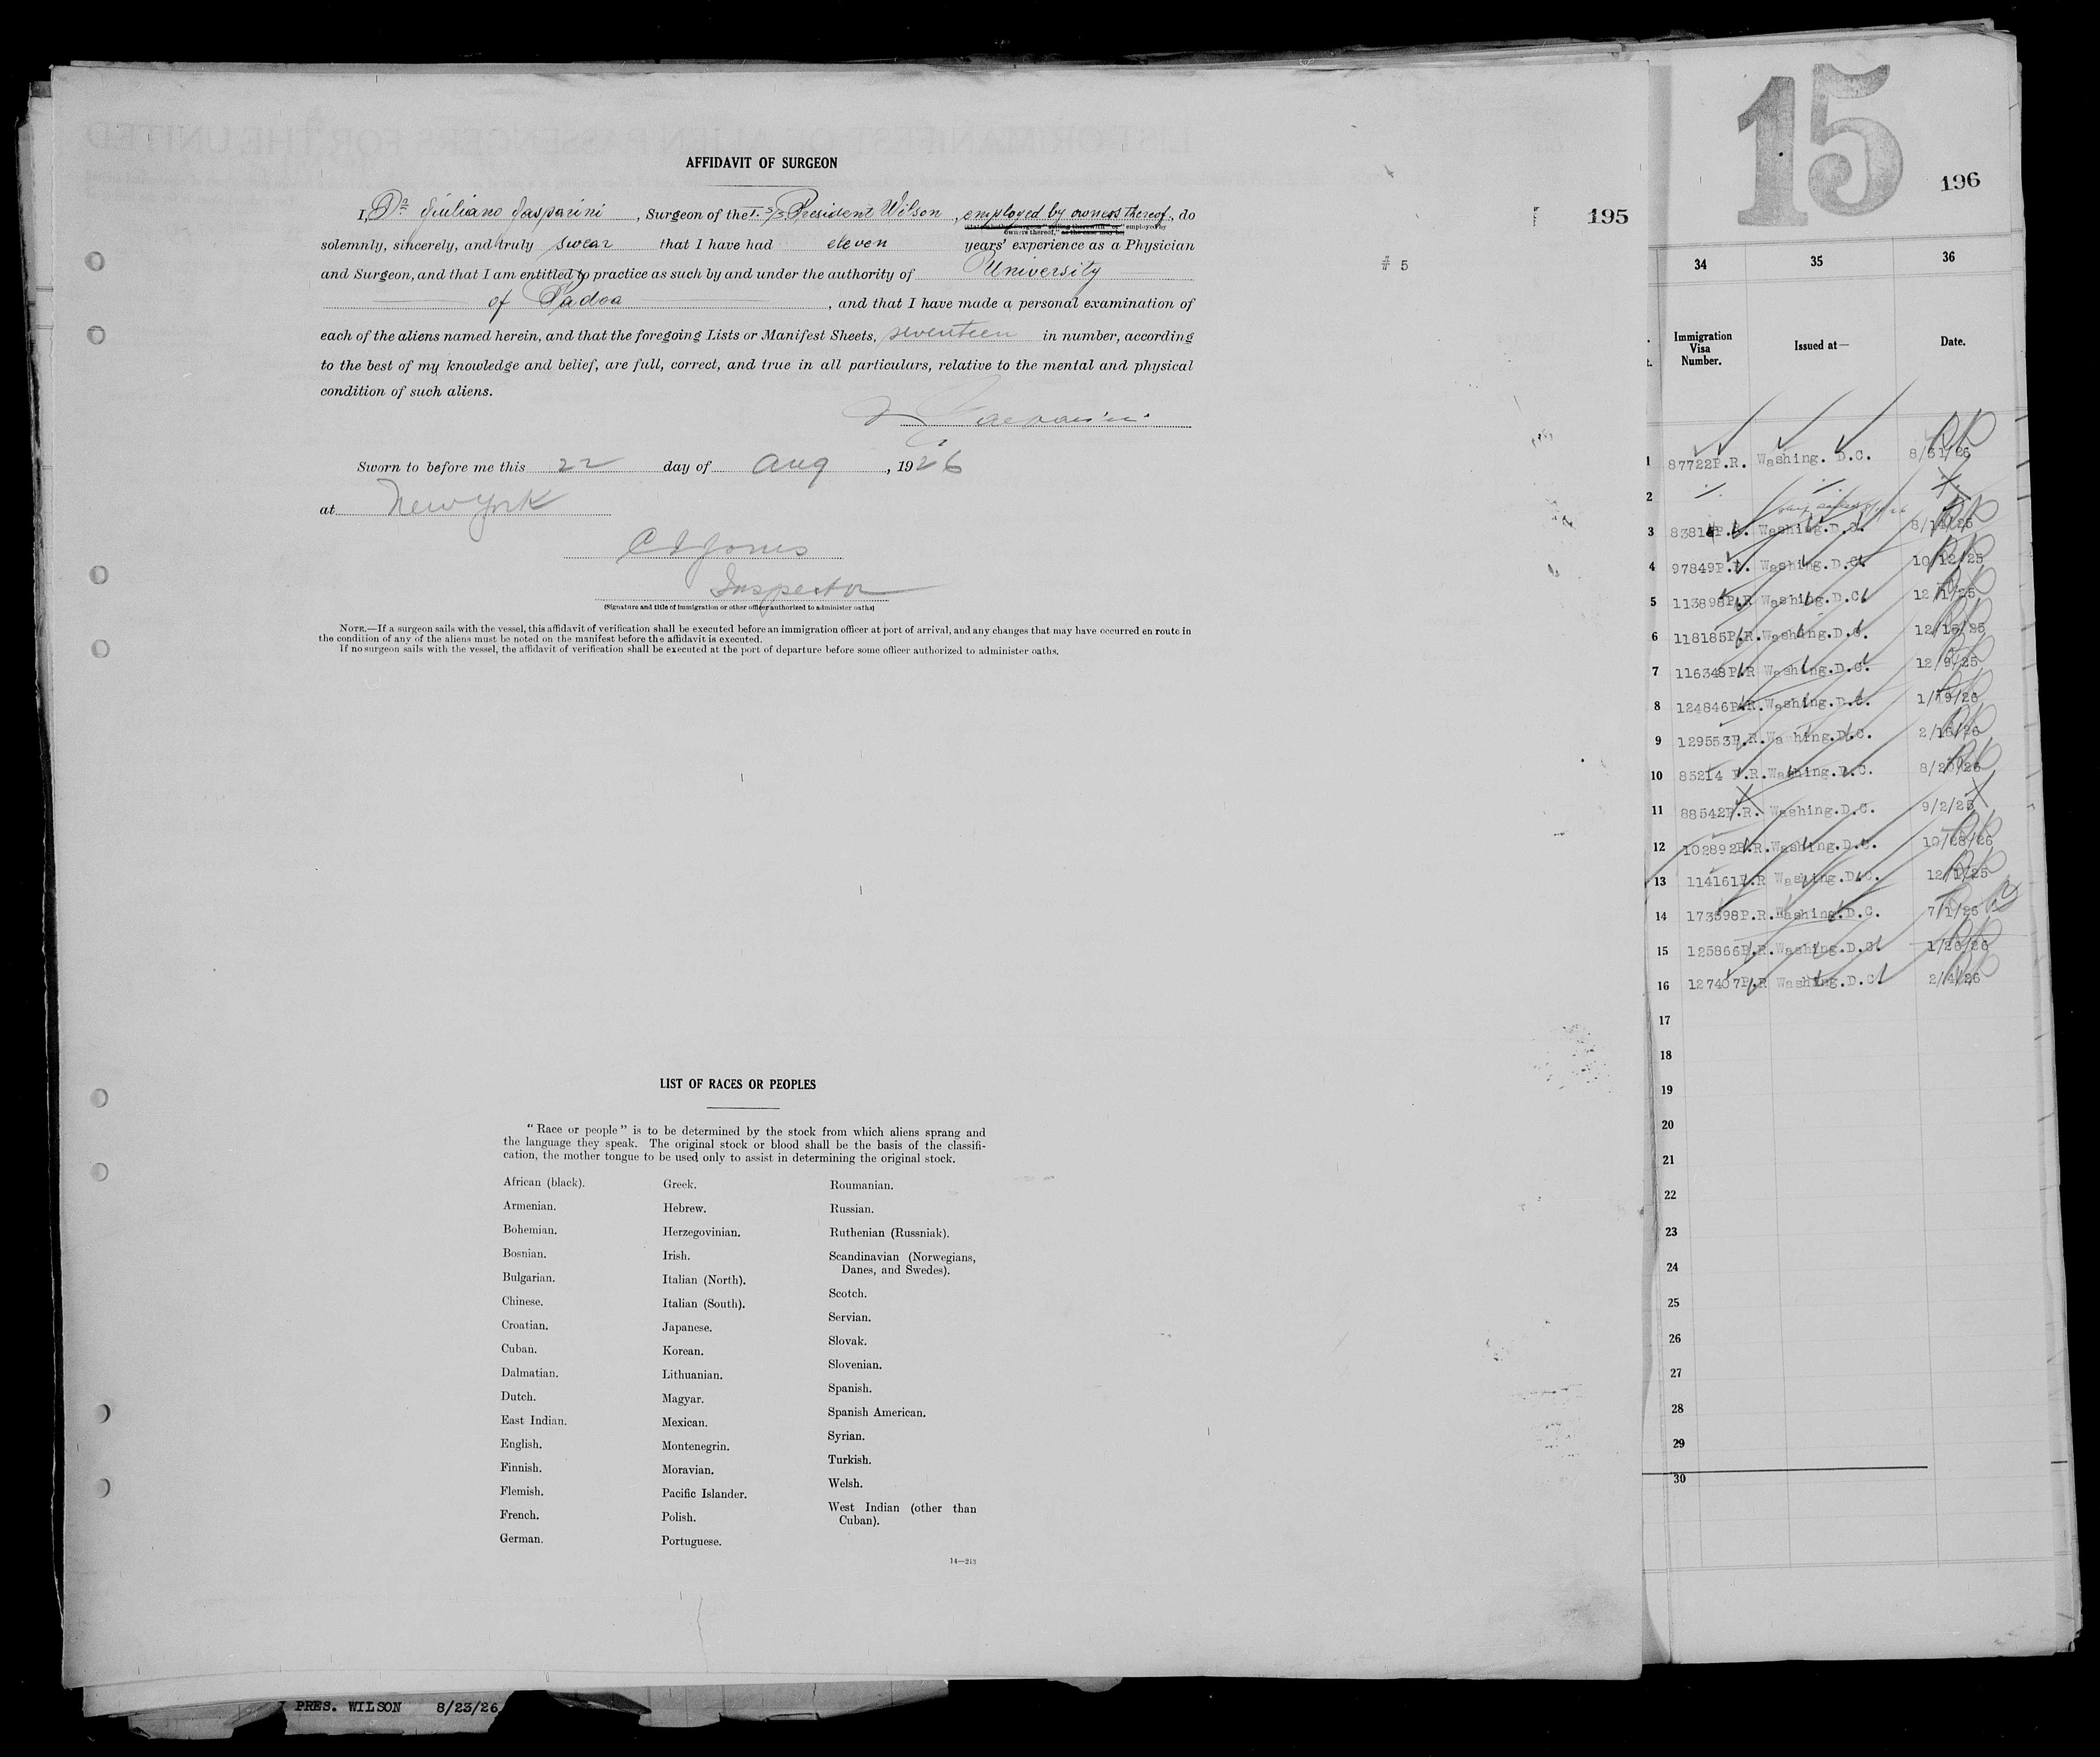 AFFIDAVIT OF SURGEON
I, Dr Giuliano Gasparini, Surgeon of the I. S/S President Wilson, employed by owners thereof, do
solemnly, sincerely, and truly swear that I have had eleven years' experience as a Physician
and Surgeon, and that I am entitled to practice as such by and under the authority of University
of Padoa, and that I have made a personal examination of
each of the aliens named herein, and that the foregoing Lists or Manifest Sheets, seventeen in number, according
to the best of my knowledge and belief, are full, correct, and true in all particulars, relative to the mental and physical
condition of such aliens.
Gasparini
Sworn to before me this 22 day of Aug, 1926
at New York
Jones
Inspector
(Signature and title of immigration or other officer authorized to administer oaths)
NOTE.—If a surgeon sails with the vessel, this affidavit of verification shall be executed before an immigration officer at port of arrival, and any changes that may have occurred en route in
the condition of any of the aliens must be noted on the manifest before the affidavit is executed.
If no surgeon sails with the vessel, the affidavit of verification shall be executed at the port of departure before some officer authorized to administer oaths.
195
# 5
LIST OF RACES OR PEOPLES
"Race or people" is to be determined by the stock from which aliens sprang and
the language they speak. The original stock or blood shall be the basis of the classifi-
cation, the mother tongue to be used only to assist in determining the original stock.
African (black).
Armenian.
Bohemian.
Bosnian.
Bulgarian.
Chinese.
Croatian.
Cuban.
Dalmatian.
Dutch.
East Indian.
English.
Finnish.
Flemish.
French.
German.
Greek.
Hebrew.
Herzegovinian.
Irish.
Italian (North).
Italian (South).
Japanese.
Korean.
Lithuanian.
Magyar.
Mexican.
Montenegrin.
Moravian.
Pacific Islander.
Polish.
Portuguese.
Roumanian.
Russian.
Ruthenian (Russniak).
Scandinavian (Norwegians,
Danes, and Swedes).
Scotch.
Servian.
Slovak.
Slovenian.
Spanish.
Spanish American.
Syrian.
Turkish.
Welsh.
West Indian (other than
Cuban).
14—213
PRES. WILSON 8/23/26
15
196
34 35 36
Immigration Visa Number. Issued at— Date.
1 87722P.R. Washing. D.C. 8/31/26
2
3 Washing.D.C. 8/14/26
4 97849P.R. Washing.D.C. 10/12/25
5 113898P.R Washing.D.C. 12/1/25
6 118185P.R. Washing.D.C. 12/15/25
7 116348P.R Washing.D.C. 12/9/25
8 124846P.R. Washing.D.C. 1/19/26
9 129553P.R. Washing.D.C. 2/16/26
10 85214 P.R. Washing.D.C. 8/20/26
11 88542P.R. Washing.D.C. 9/2/25
12 102892P.R. Washing.D.C. 10/28/26
13 114161P.R Washing.D.C. 12/1/25
14 173598P.R. Washing.D.C. 7/1/26
15 125866P.R. Washing.D.C. 1/26/26
16 127407P.R Washing.D.C. 2/4/26
17
18
19
20
21
22
23
24
25
26
27
28
29
30